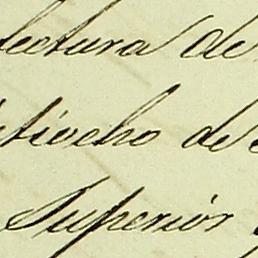 lectura de
tiocho de
Superior